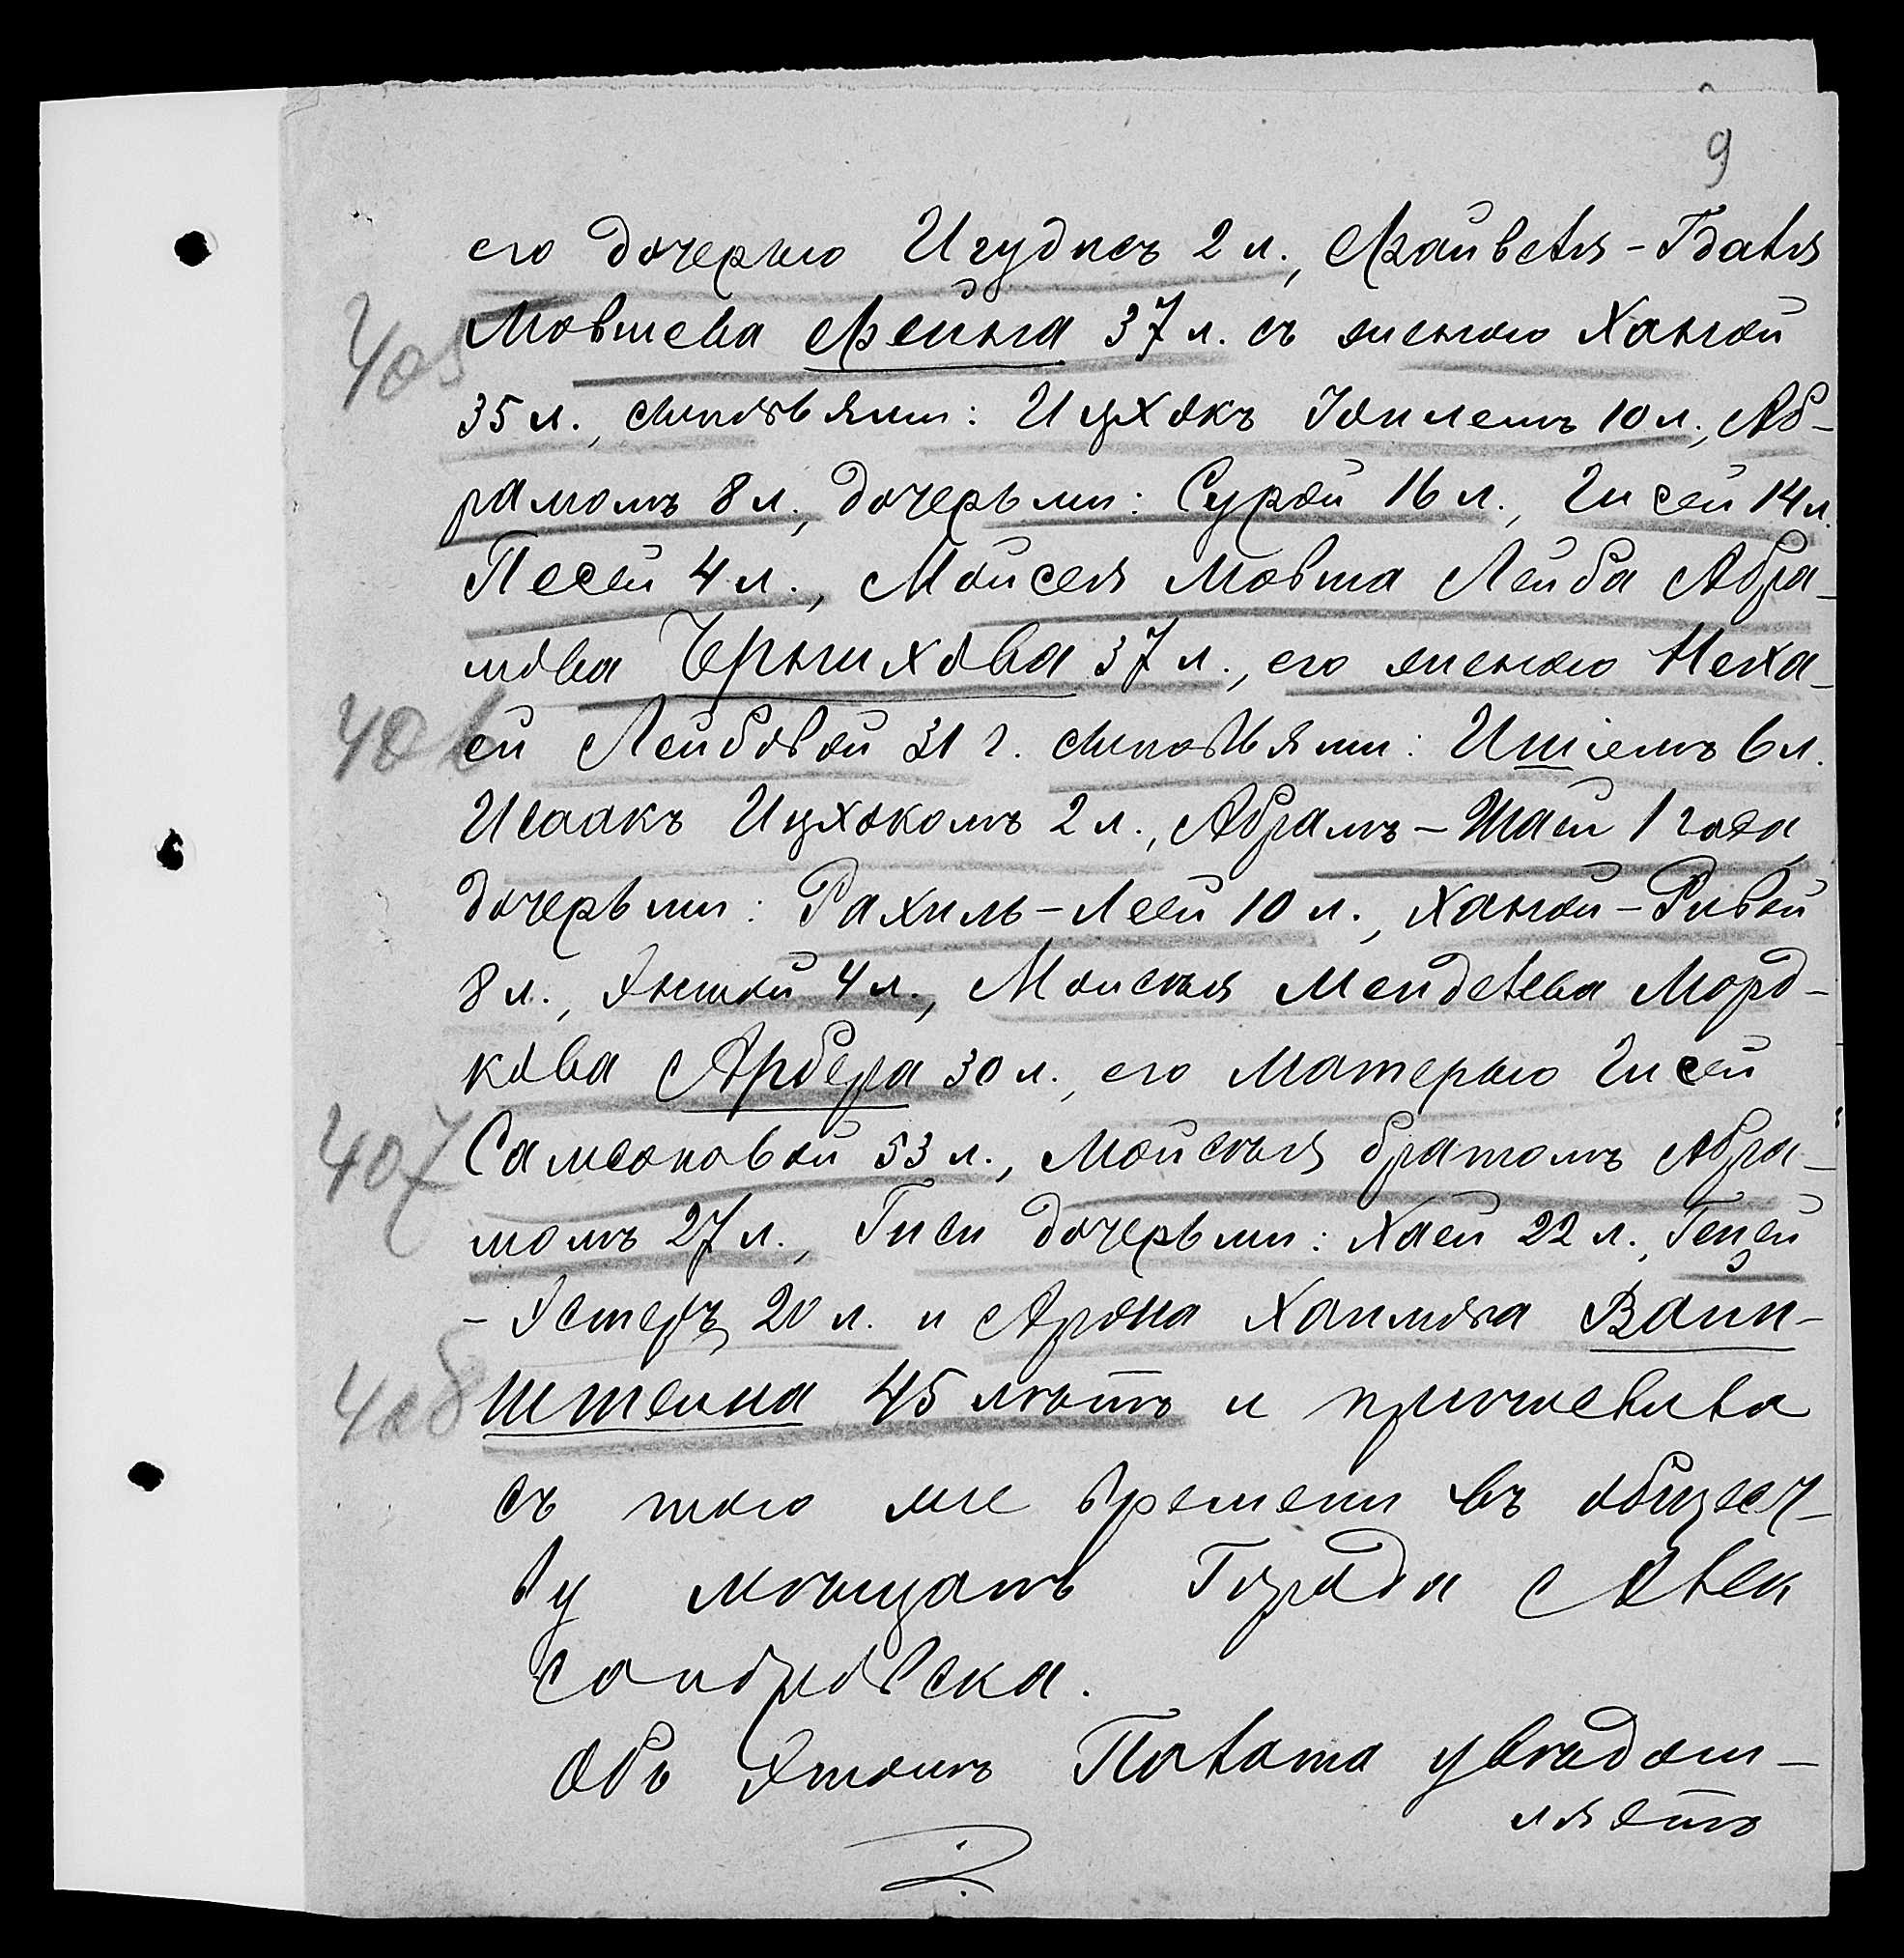 9
его дочерью Игудисъ 2 л., Файвеля-Гдаля
405 Мовшева Фейна 37 л. съ женою Ханой
35 л., сыновьями: Ицхокъ Іоилемъ 10 л., Аб-
рамомъ 8 л., дочерьми: Сурой 16 л., Гисей 14 л.
Песей 4 л., Мойсея Мовша Лейба Абра-
мова Черниховa 37 л., его женою Неха-
406 ей Лейбовой 31 г. сыновьями: Ишіемъ 6 л.
Исаакъ Ицхокомъ 2 л., Абрамъ-Шаей 1 года,
дочерьми: Рахиль-Леей 10 л., Ханой-Ривой
8 л., Энтой 4 л., Мойсея Менделева Морд-
кова Арбера 30 л., его матерью Гисей
407 Самсоновой 53 л., Мойсѣя братомъ Абра-
момъ 27 л., Гиси дочерьми: Хаей 22 л., Геней
-Эстеръ 20 л. и Арона Хаимова Вайн-
408 штейна 45 лѣтъ и причислила
съ того же времени въ общест-
ву мѣщанъ Города Алек
сандровска.
Объ этомъ Палата увѣдом-
ляетъ